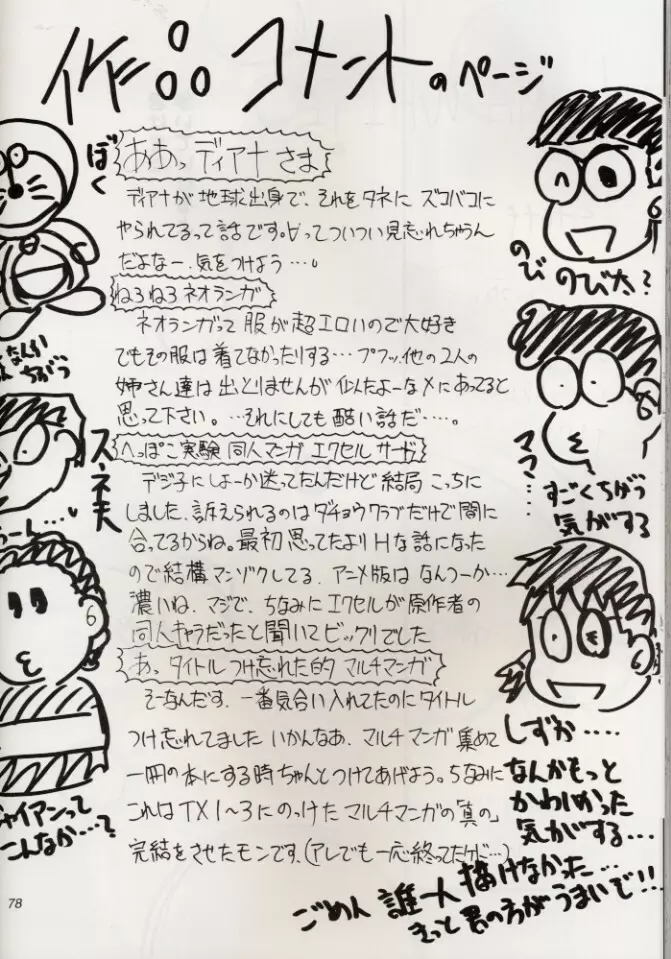 作品コメントのページ
ああっディアナさま
ディアナが地球出身で、それをタネにズコバコに
やられてるって話です。∀ってついつい見忘れちゃうん
だよなー、気をつけよう…。
ねろねろネオランガ
ネオランガって服が超エロいので大好き
でもその服は着てなかったりする…プフッ、他の2人の
姉さん達は出とりませんが似たよーなメにあってると
思って下さい。…それにしても酷い話だ…。
へっぽこ実験同人マンガエクセルサーガ
デジ子にしよーか迷ってたんだけど結局こっちに
しました、訴えられるのはダチョウクラブだけで間に
合ってるからね。最初思ってたよりHな話になった
ので結構マンゾクしてる、アニメ版はなんつーか…
濃いね、マジで、ちなみにエクセルが原作者の
同人キャラだったと聞いてビックリでした
あ、タイトルつけ忘れた的マルチマンガ
そーなんだす、一番気合い入れてたのにタイトル
つけ忘れてました いかんなあ、マルチマンガ集めて
一冊の本にする時ちゃんとつけてあげよう。ちなみに
これはTX1〜3にのっけたマルチマンガの「真の」
完結をさせたモンです、(アレでも一応終ってたけど…)
ぼく
なんか
ちがう
スネ夫
うーん…
ジャイアンって
こんなか…?
のび のび太?
ママ…
すごくちがう
気がする
しずか…
なんかもっと
かわいかった
気がする…
ごめん 誰一人描けなかった…
きっと君の方がうまいで!!
78